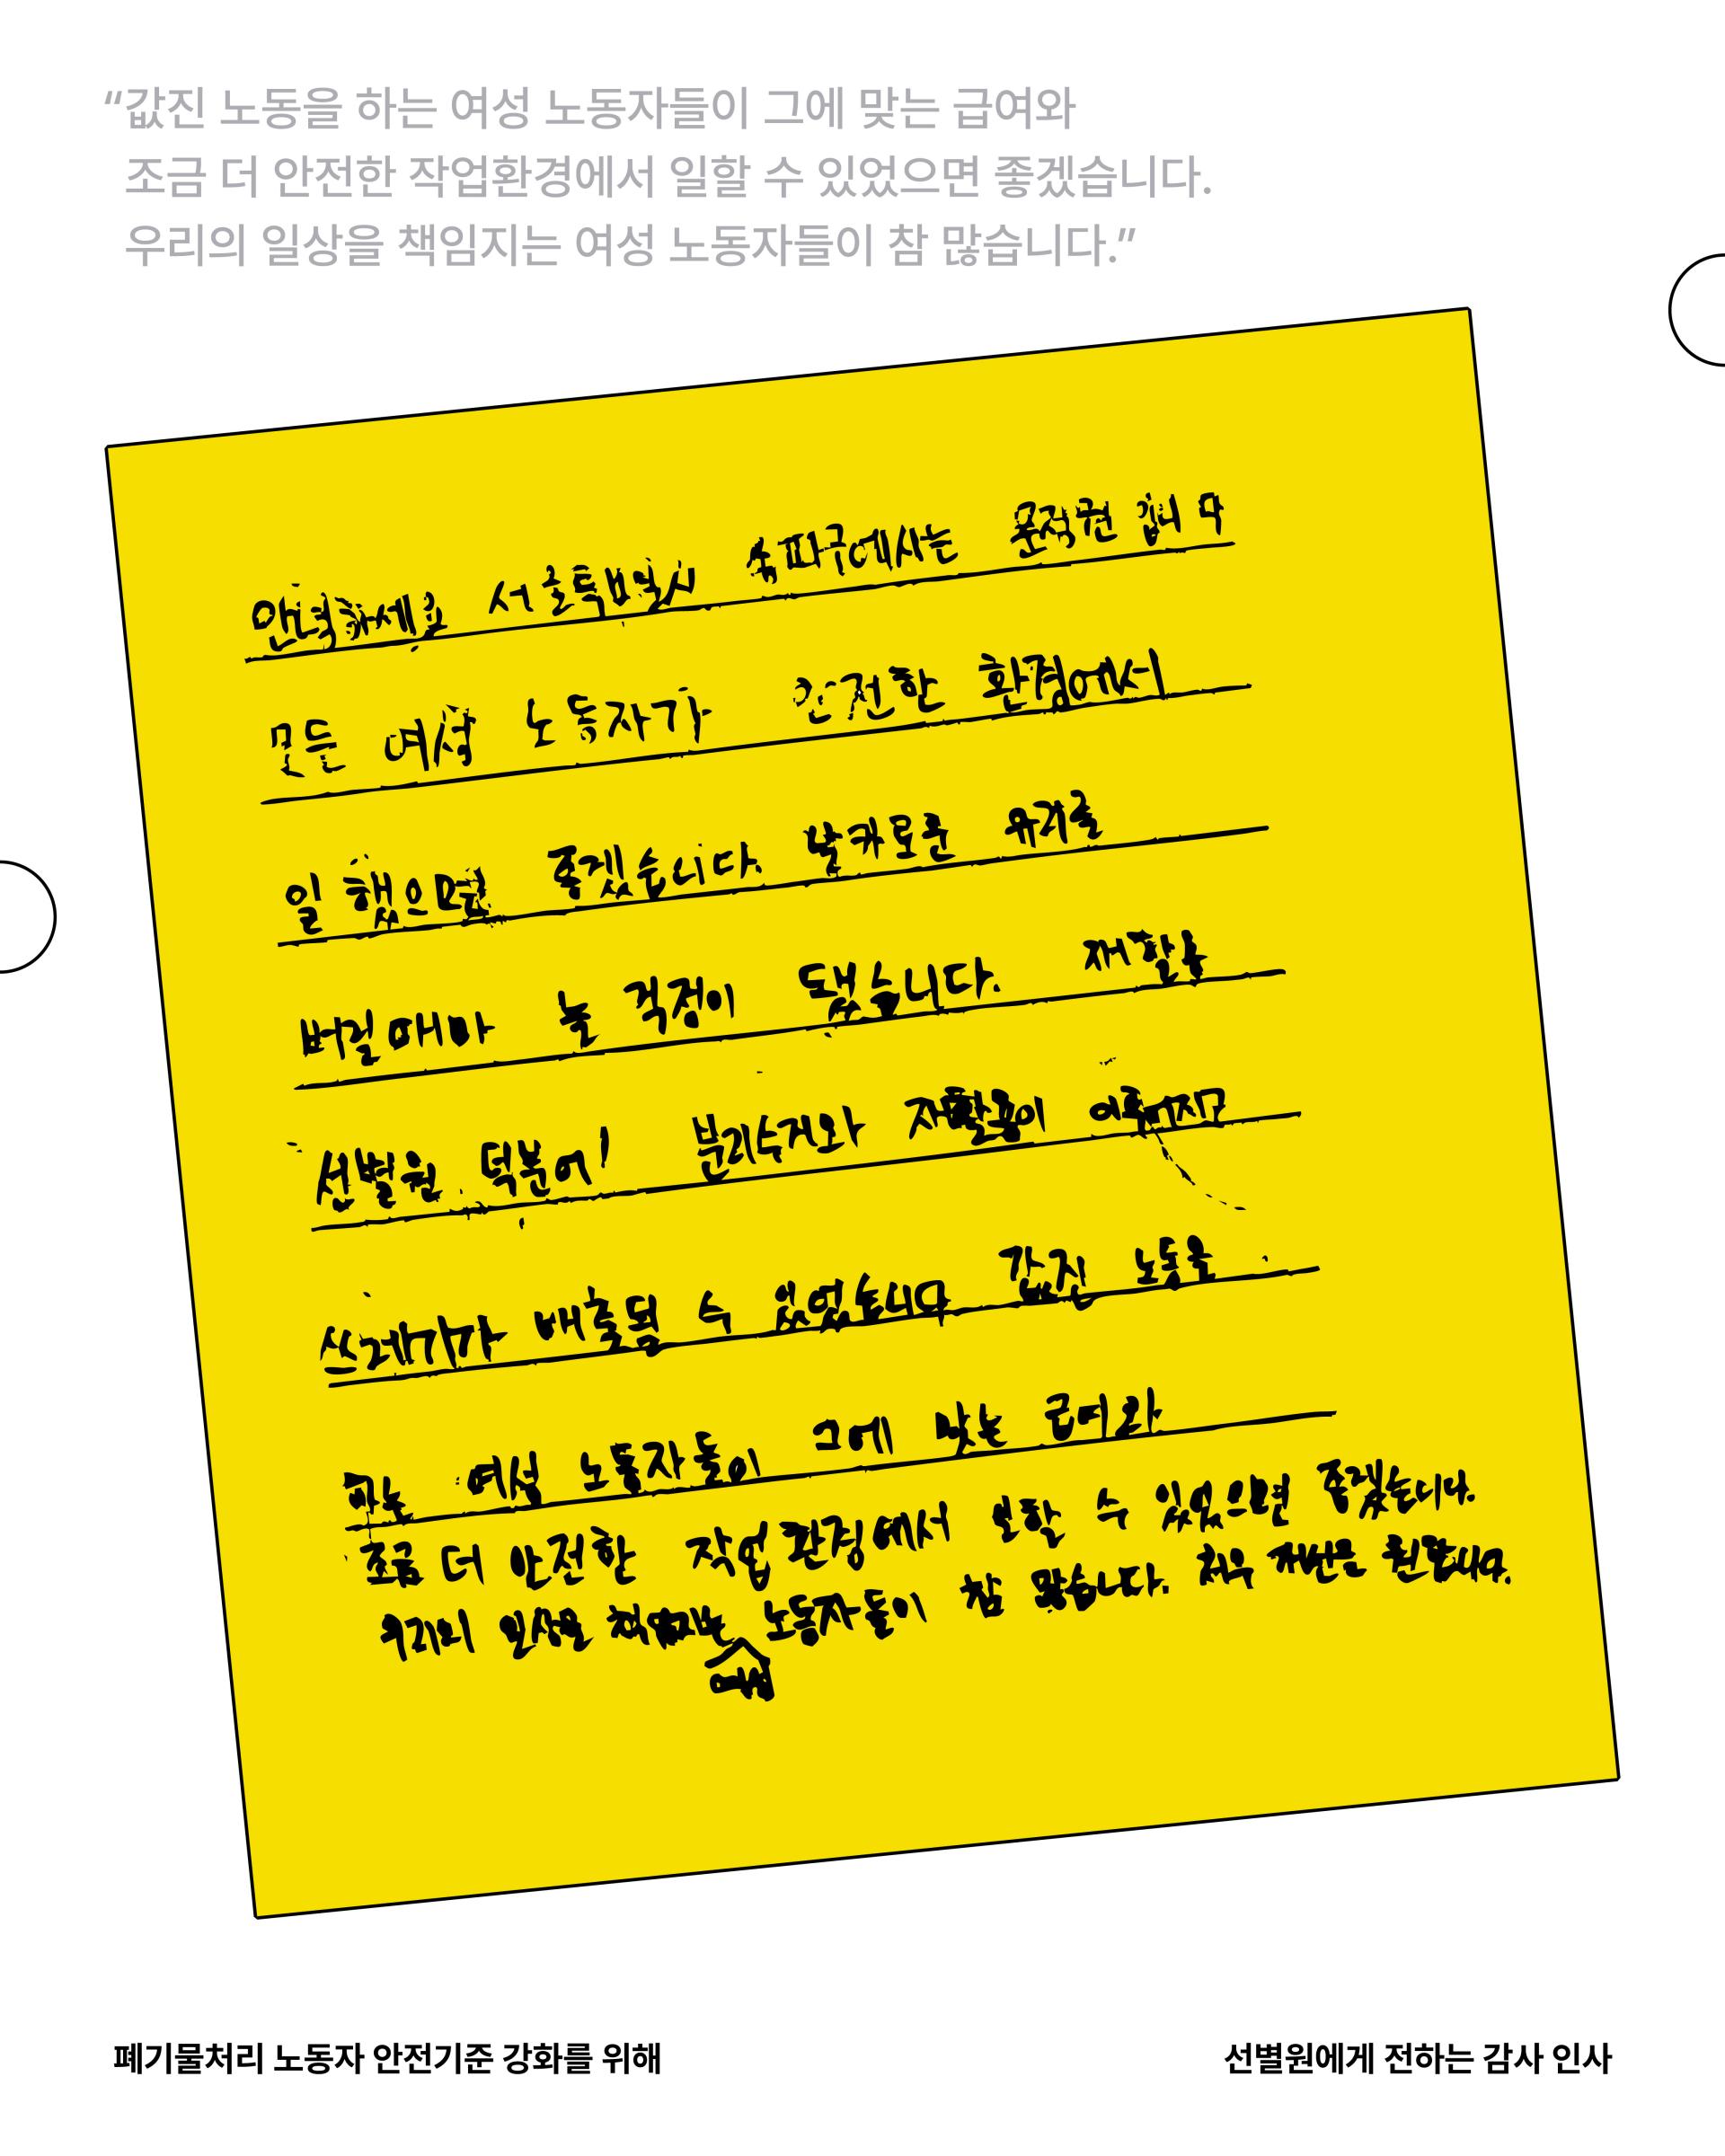 “값진 노동을 하는 여성 노동자들이 그에 맞는 급여와
조금 더 안전한 작업환경에서 일할 수 있었으면 좋겠습니다.
우리의 일상을 책임지는 여성 노동자들이 참 많습니다.”
안녕하세요 사회에서 숙피고에서는 합니다
모든 여성 노동자가 안전한 환경에서
일 했으면 좋겠습니다. 분리수거로 용기를
버릴때마다 늘 걱정이 됐습니다. 재활용
선별원 덕분에 분리한것과 재활용이 안되는
쓰레기가 배출될 수 있었습니다 값진 노동을
하는 여성 노동자들이 그에 맞는 급여와
조금 더 안전한 작업환경에서 일할 수 있었으면 좋겠습니다.
우리의 일상을 책임지는 여성 노동자들이 참 많습니다.
폐기물처리 노동자 안전기준 강화를 위해
선별원에게 전하는 감사 인사